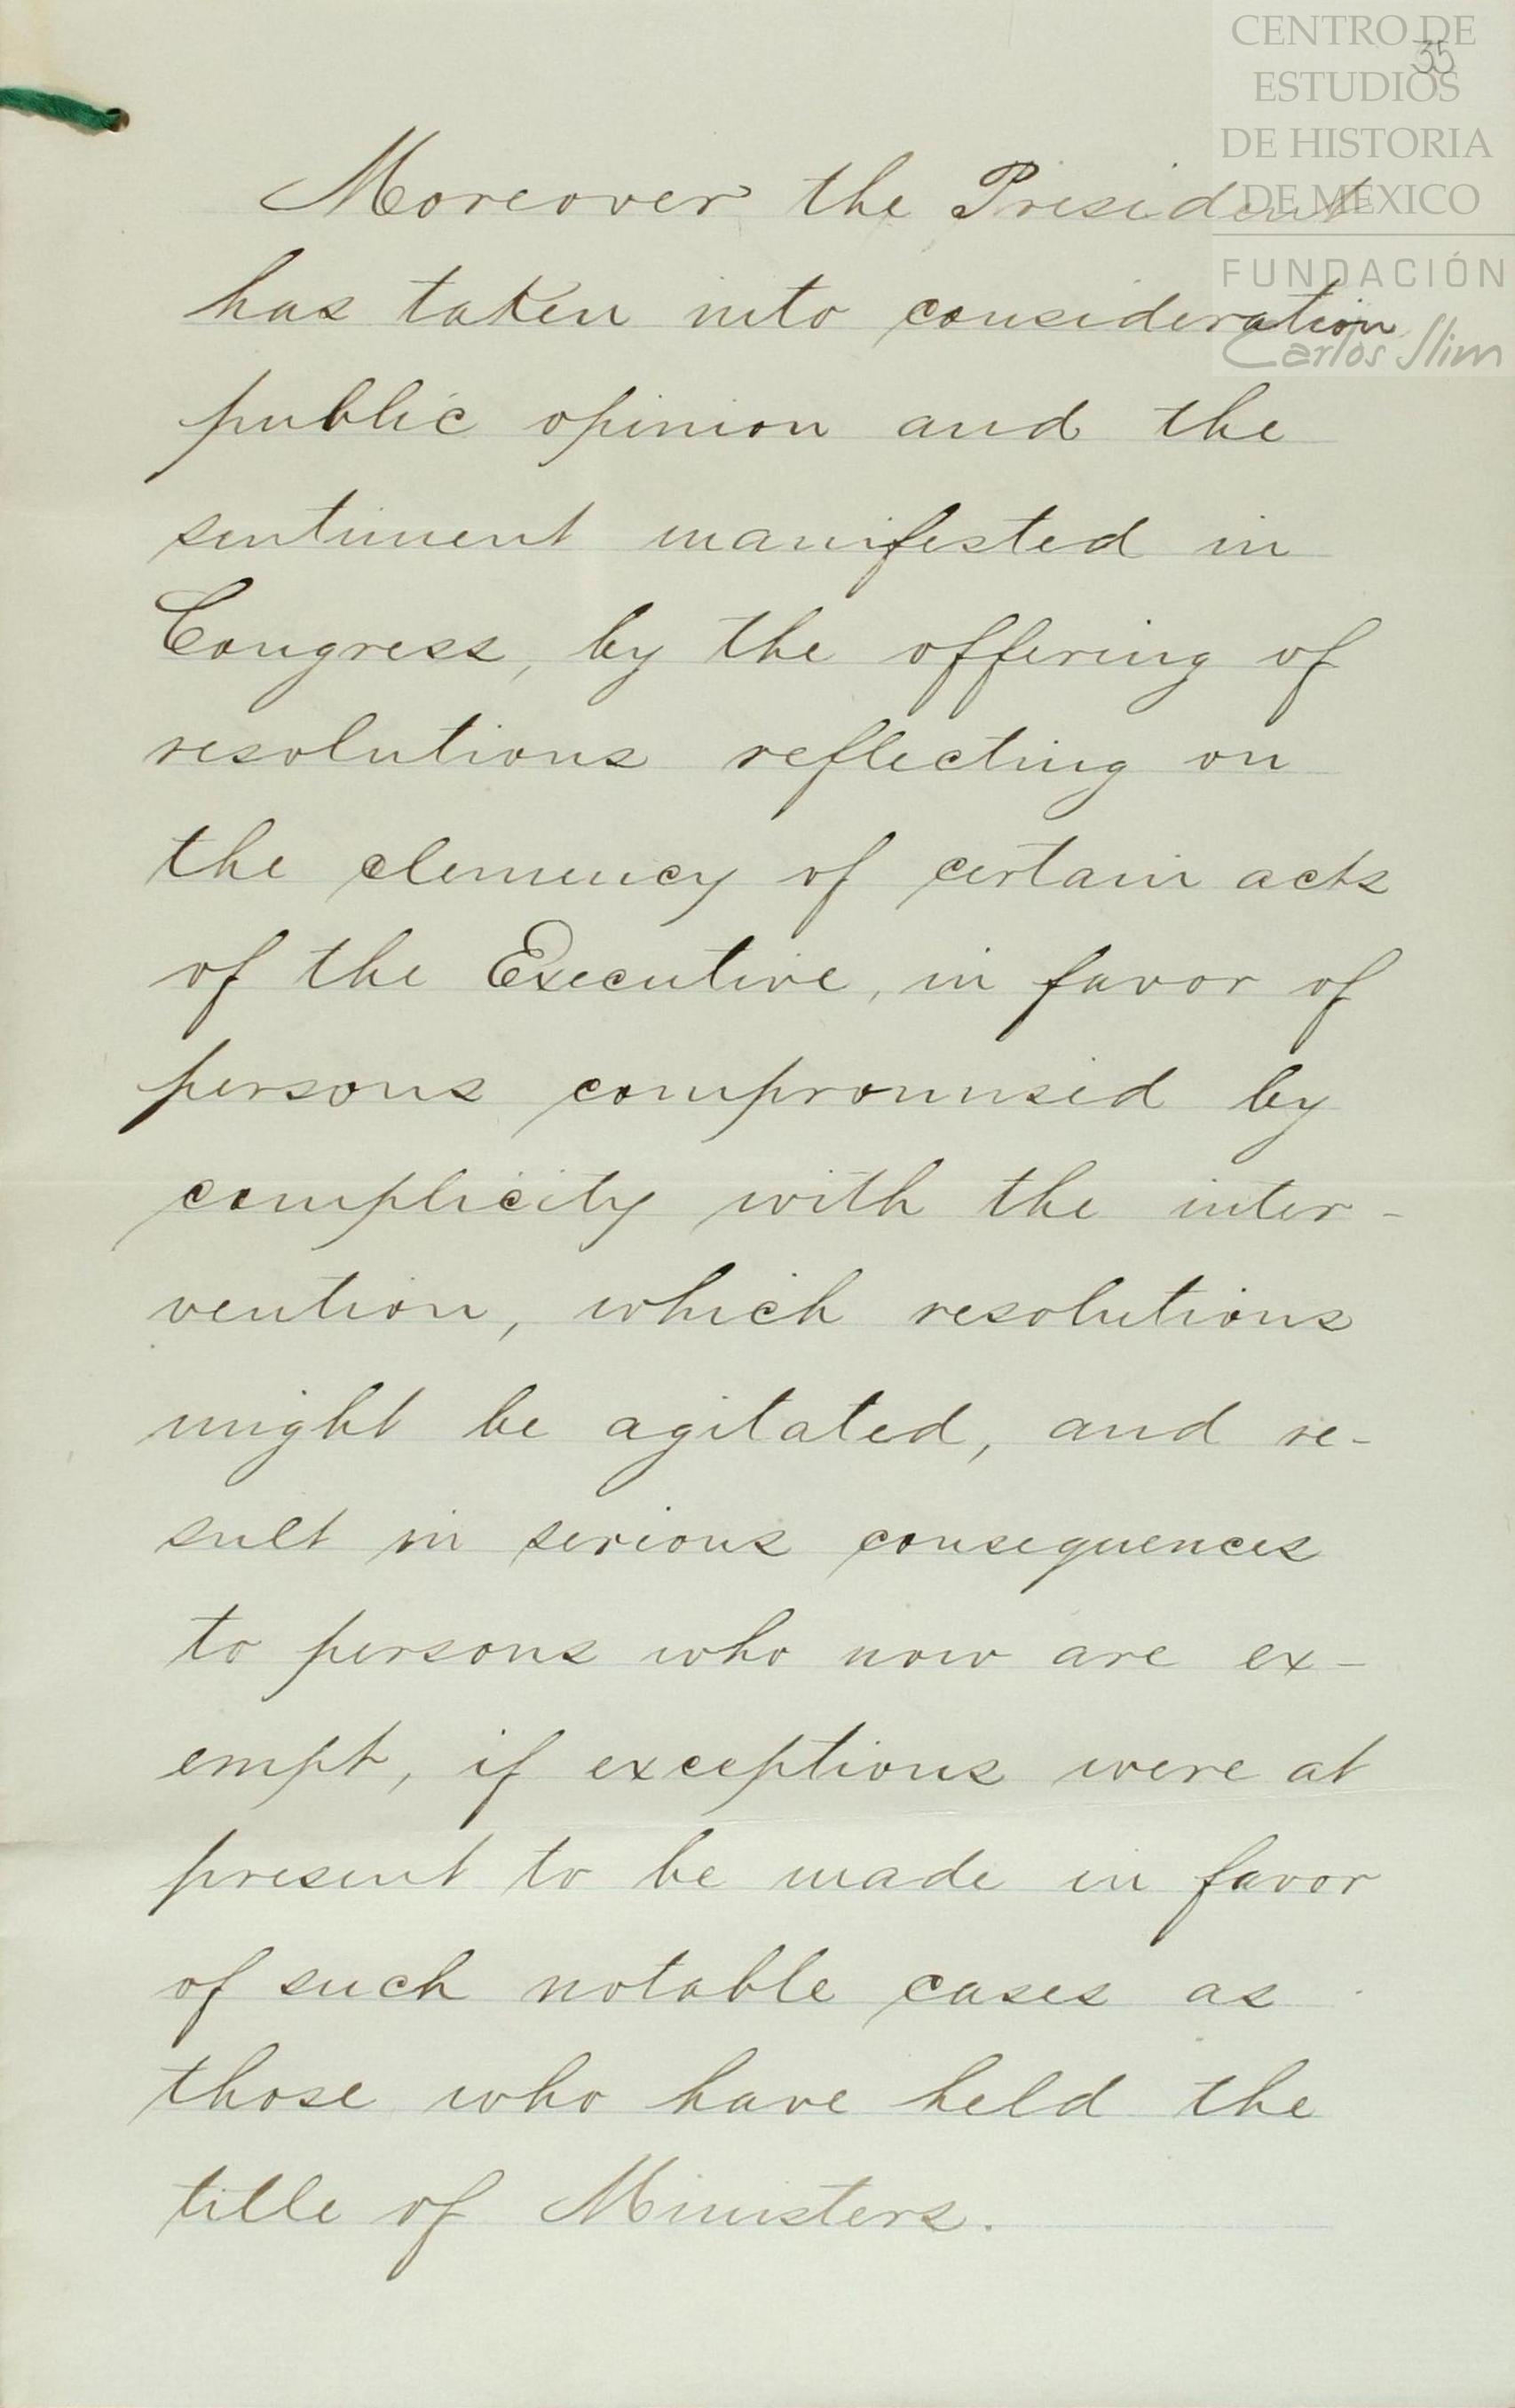 CENTRO DE
ESTUDIOS
DE HISTORIA
DE MÉXICO
FUNDACIÓN
Carlos Slim
35
Moreover the President
has taken into consideration
public opinion and the
sentiment manifested in
Congress, by the offering of
resolutions reflecting on
the clemency of certain acts
of the Executive, in favor of
persons compromised by
complicity with the inter-
vention, which resolutions
might be agitated, and re-
sult in serious consequences
to persons who now are ex-
empt, if exceptions were at
present to be made in favor
of such notable cases as
those who have held the
title of Ministers.